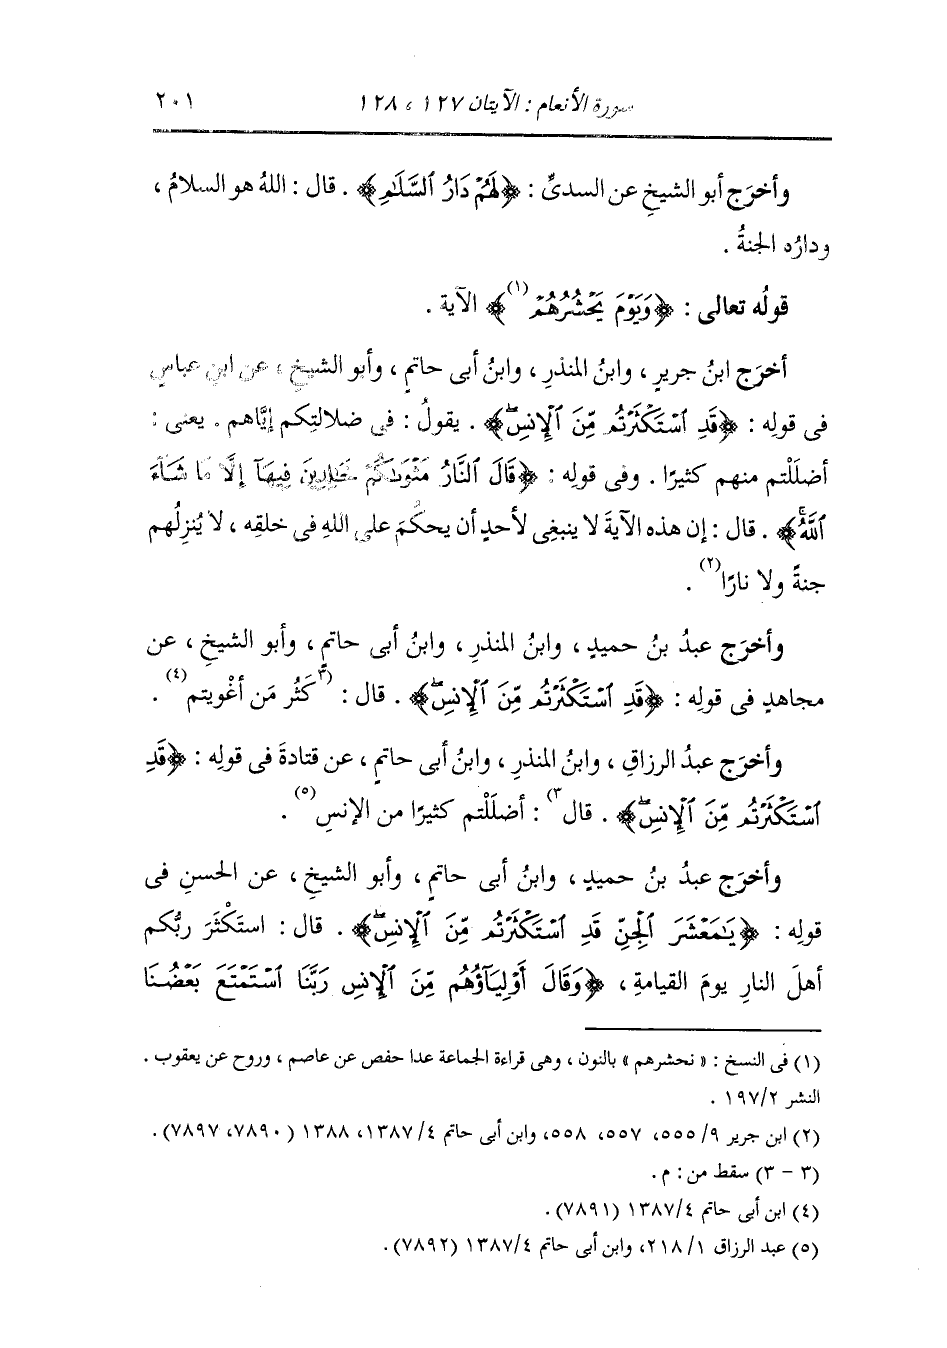 سورة الأنعام : الآيتان ١٢٧ ، ١٢٨ ٢٠١
وأخرَج أبو الشيخِ عن السدىِّ : ﴿لَهُمْ دَارُ ٱلسَّلَٰمِ﴾ . قال : اللهُ هو السلامُ ،
ودارُه الجنةُ .
قولُه تعالى : ﴿وَيَوْمَ يَحْشُرُهُمْ(١)﴾ الآية .
أخرَج ابنُ جريرٍ ، وابنُ المنذرِ ، وابنُ أبى حاتمٍ ، وأبو الشيخِ ، عن ابنِ عباسٍ
فى قولِه : ﴿قَدِ ٱسْتَكْثَرْتُم مِّنَ ٱلْإِنسِۖ﴾ . يقولُ : فى ضلالتِكم إيَّاهم . يعنى :
أضلَلْتم منهم كثيرًا . وفى قولِه : ﴿قَالَ ٱلنَّارُ مَثْوَىٰكُمْ خَٰلِدِينَ فِيهَآ إِلَّا مَا شَآءَ
ٱللَّهُۚ﴾ . قال : إن هذه الآيةَ لا ينبغِى لأحدٍ أن يحكُمَ على اللهِ فى خلقِه ، لا يُنزِلُهم
جنةً ولا نارًا(٢) .
وأخرَج عبدُ بنُ حميدٍ ، وابنُ المنذرِ ، وابنُ أبى حاتمٍ ، وأبو الشيخِ ، عن
مجاهدٍ فى قولِه : ﴿قَدِ ٱسْتَكْثَرْتُم مِّنَ ٱلْإِنسِۖ﴾ . قال : (٣كَثُر مَن أغْويتم(٤) .
وأخرَج عبدُ الرزاقِ ، وابنُ المنذرِ ، وابنُ أبى حاتمٍ ، عن قتادةَ فى قولِه : ﴿قَدِ
ٱسْتَكْثَرْتُم مِّنَ ٱلْإِنسِۖ﴾ . قال٣) : أضلَلْتم كثيرًا من الإنسِ(٥) .
وأخرَج عبدُ بنُ حميدٍ ، وابنُ أبى حاتمٍ ، وأبو الشيخِ ، عن الحسنِ فى
قولِه : ﴿يَٰمَعْشَرَ ٱلْجِنِّ قَدِ ٱسْتَكْثَرْتُم مِّنَ ٱلْإِنسِۖ﴾ . قال : استكْثَرَ ربُّكم
أهلَ النارِ يومَ القيامةِ ، ﴿وَقَالَ أَوْلِيَآؤُهُم مِّنَ ٱلْإِنسِ رَبَّنَا ٱسْتَمْتَعَ بَعْضُنَا
(١) فى النسخ : « نحشرهم » بالنون ، وهى قراءة الجماعة عدا حفص عن عاصم ، وروح عن يعقوب .
النشر ١٩٧/٢ .
(٢) ابن جرير ٩/ ٥٥٥، ٥٥٧، ٥٥٨، وابن أبى حاتم ٤/ ١٣٨٧، ١٣٨٨ (٧٨٩٠، ٧٨٩٧).
(٣ - ٣) سقط من : م .
(٤) ابن أبى حاتم ١٣٨٧/٤ (٧٨٩١).
(٥) عبد الرزاق ١/ ٢١٨، وابن أبى حاتم ١٣٨٧/٤ (٧٨٩٢).